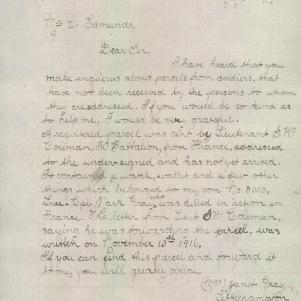 Mr E. Edmunds,
Dear Sir,
I have heard that you
make inquiries about parcels from soldiers, that
have not been received by the persons to whom
they are addressed. If you would be so kind as
to help me, I would be very grateful.
A registered parcel was sent by Lieutenant S
Coleman, Battalion, from France, addressed
to the undersigned and has not yet arrived.
It contained a watch, wallet and a few other
things which belonged to my son No.
Lnce-Cpl. Jack Gray, who was killed in action in
France. The letter from Lieut S Coleman,
saying he was forwarding the parcel, was
written on November 13th 1916,
If you can find this parcel and forward it
to me, you will greatly oblige,
Mrs Janet Gray,